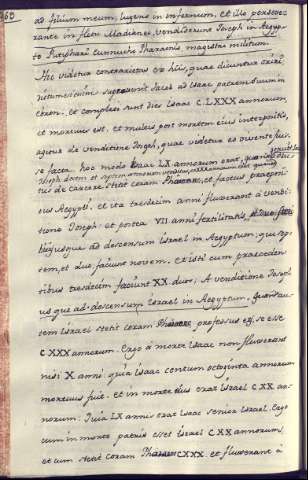 60
ad filium meum, lugens in infernum, et illo perseve-
rante in fletu Madianei vendiderunt Joseph in Aegyp-
to Putiphari Eunucho Pharaonis magistro militum.
Hec videtur contrarietas
supra dixit Isaac patrem suum in
et completi sunt dies Isaac CLXXX annorum,
et mortuus est, et multis post mortem eius interpositis,
agitur de venditione Joseph, quae videtur eo vivente fuis-
se facta hoc modo Isaac LX annorum erat, quando
Joseph autem
de carcere stetit coram Pharaone, et factus praeposi-
tus Aegypti. et ita tredecim anni fluxerant a vendi-
tione Joseph. et postea VII anni fertilitatis,
usque ad descensum israel in Aegyptum; qui sep-
tem, et duo, faciunt novem. et isti cum praeceden-
tibus tredecim faciunt XX duos. A venditione Joseph
usque ad descensum Israel in Aegyptum. Quando au-
tem israel stetit coram Pharaone professus est, se esse
CXXX annorum. Ergo a morte isaac non fluxerant
nisi X anni. quia isaac centum octoginta annorum
mortuus fuit. et in morte eius erat israel CXX an-
norum. Quia LX annis erat isaac senior israel. Ergo
cum in morte patris esset israel CXX annorum,
et cum stetit coram Pharaone CXXX et fluxerant à